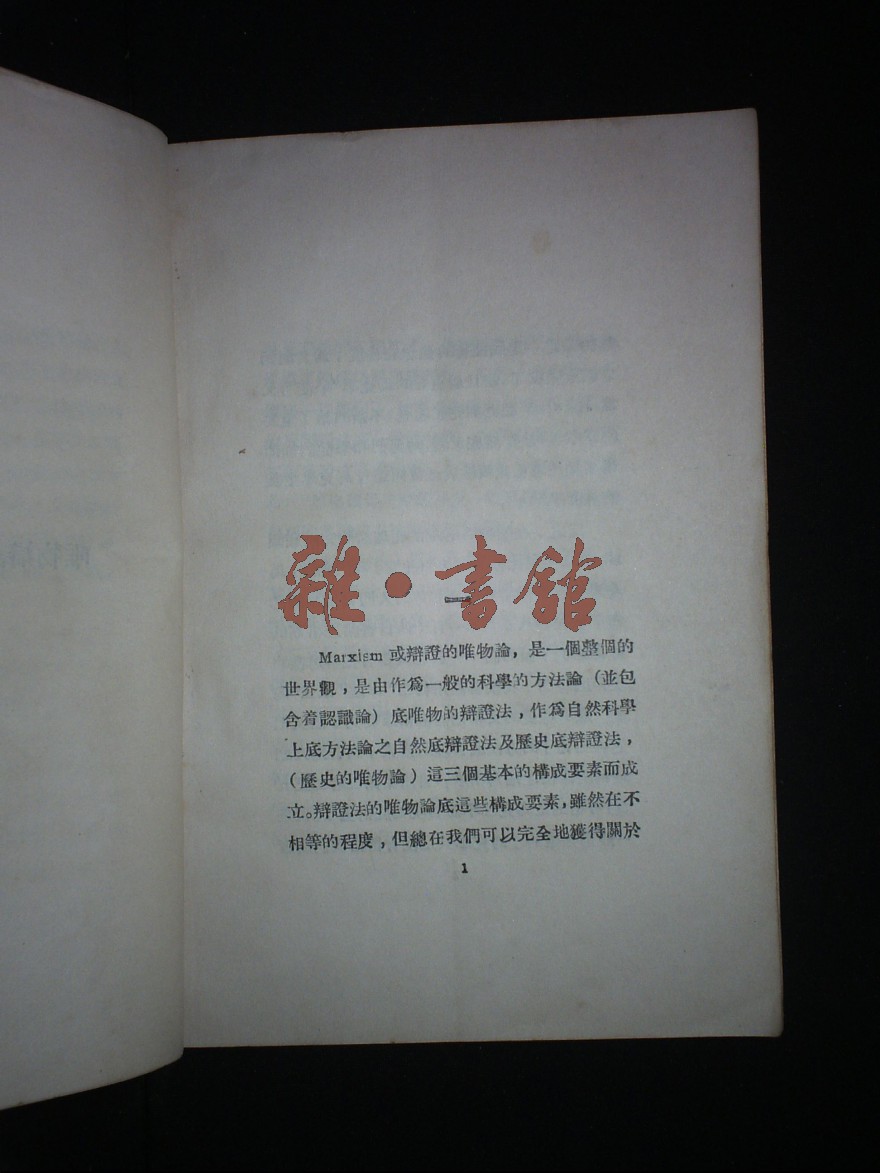 雜·書館
一
Marxism 或辯證的唯物論，是一個整個的
世界觀，是由作爲一般的科學的方法論（並包
含着認識論）底唯物的辯證法，作爲自然科學
上底方法論之自然底辯證法及歷史底辯證法，
（歷史的唯物論）這三個基本的構成要素而成
立。辯證法的唯物論底這些構成要素，雖然在不
相等的程度，但總在我們可以完全地獲得關於
1